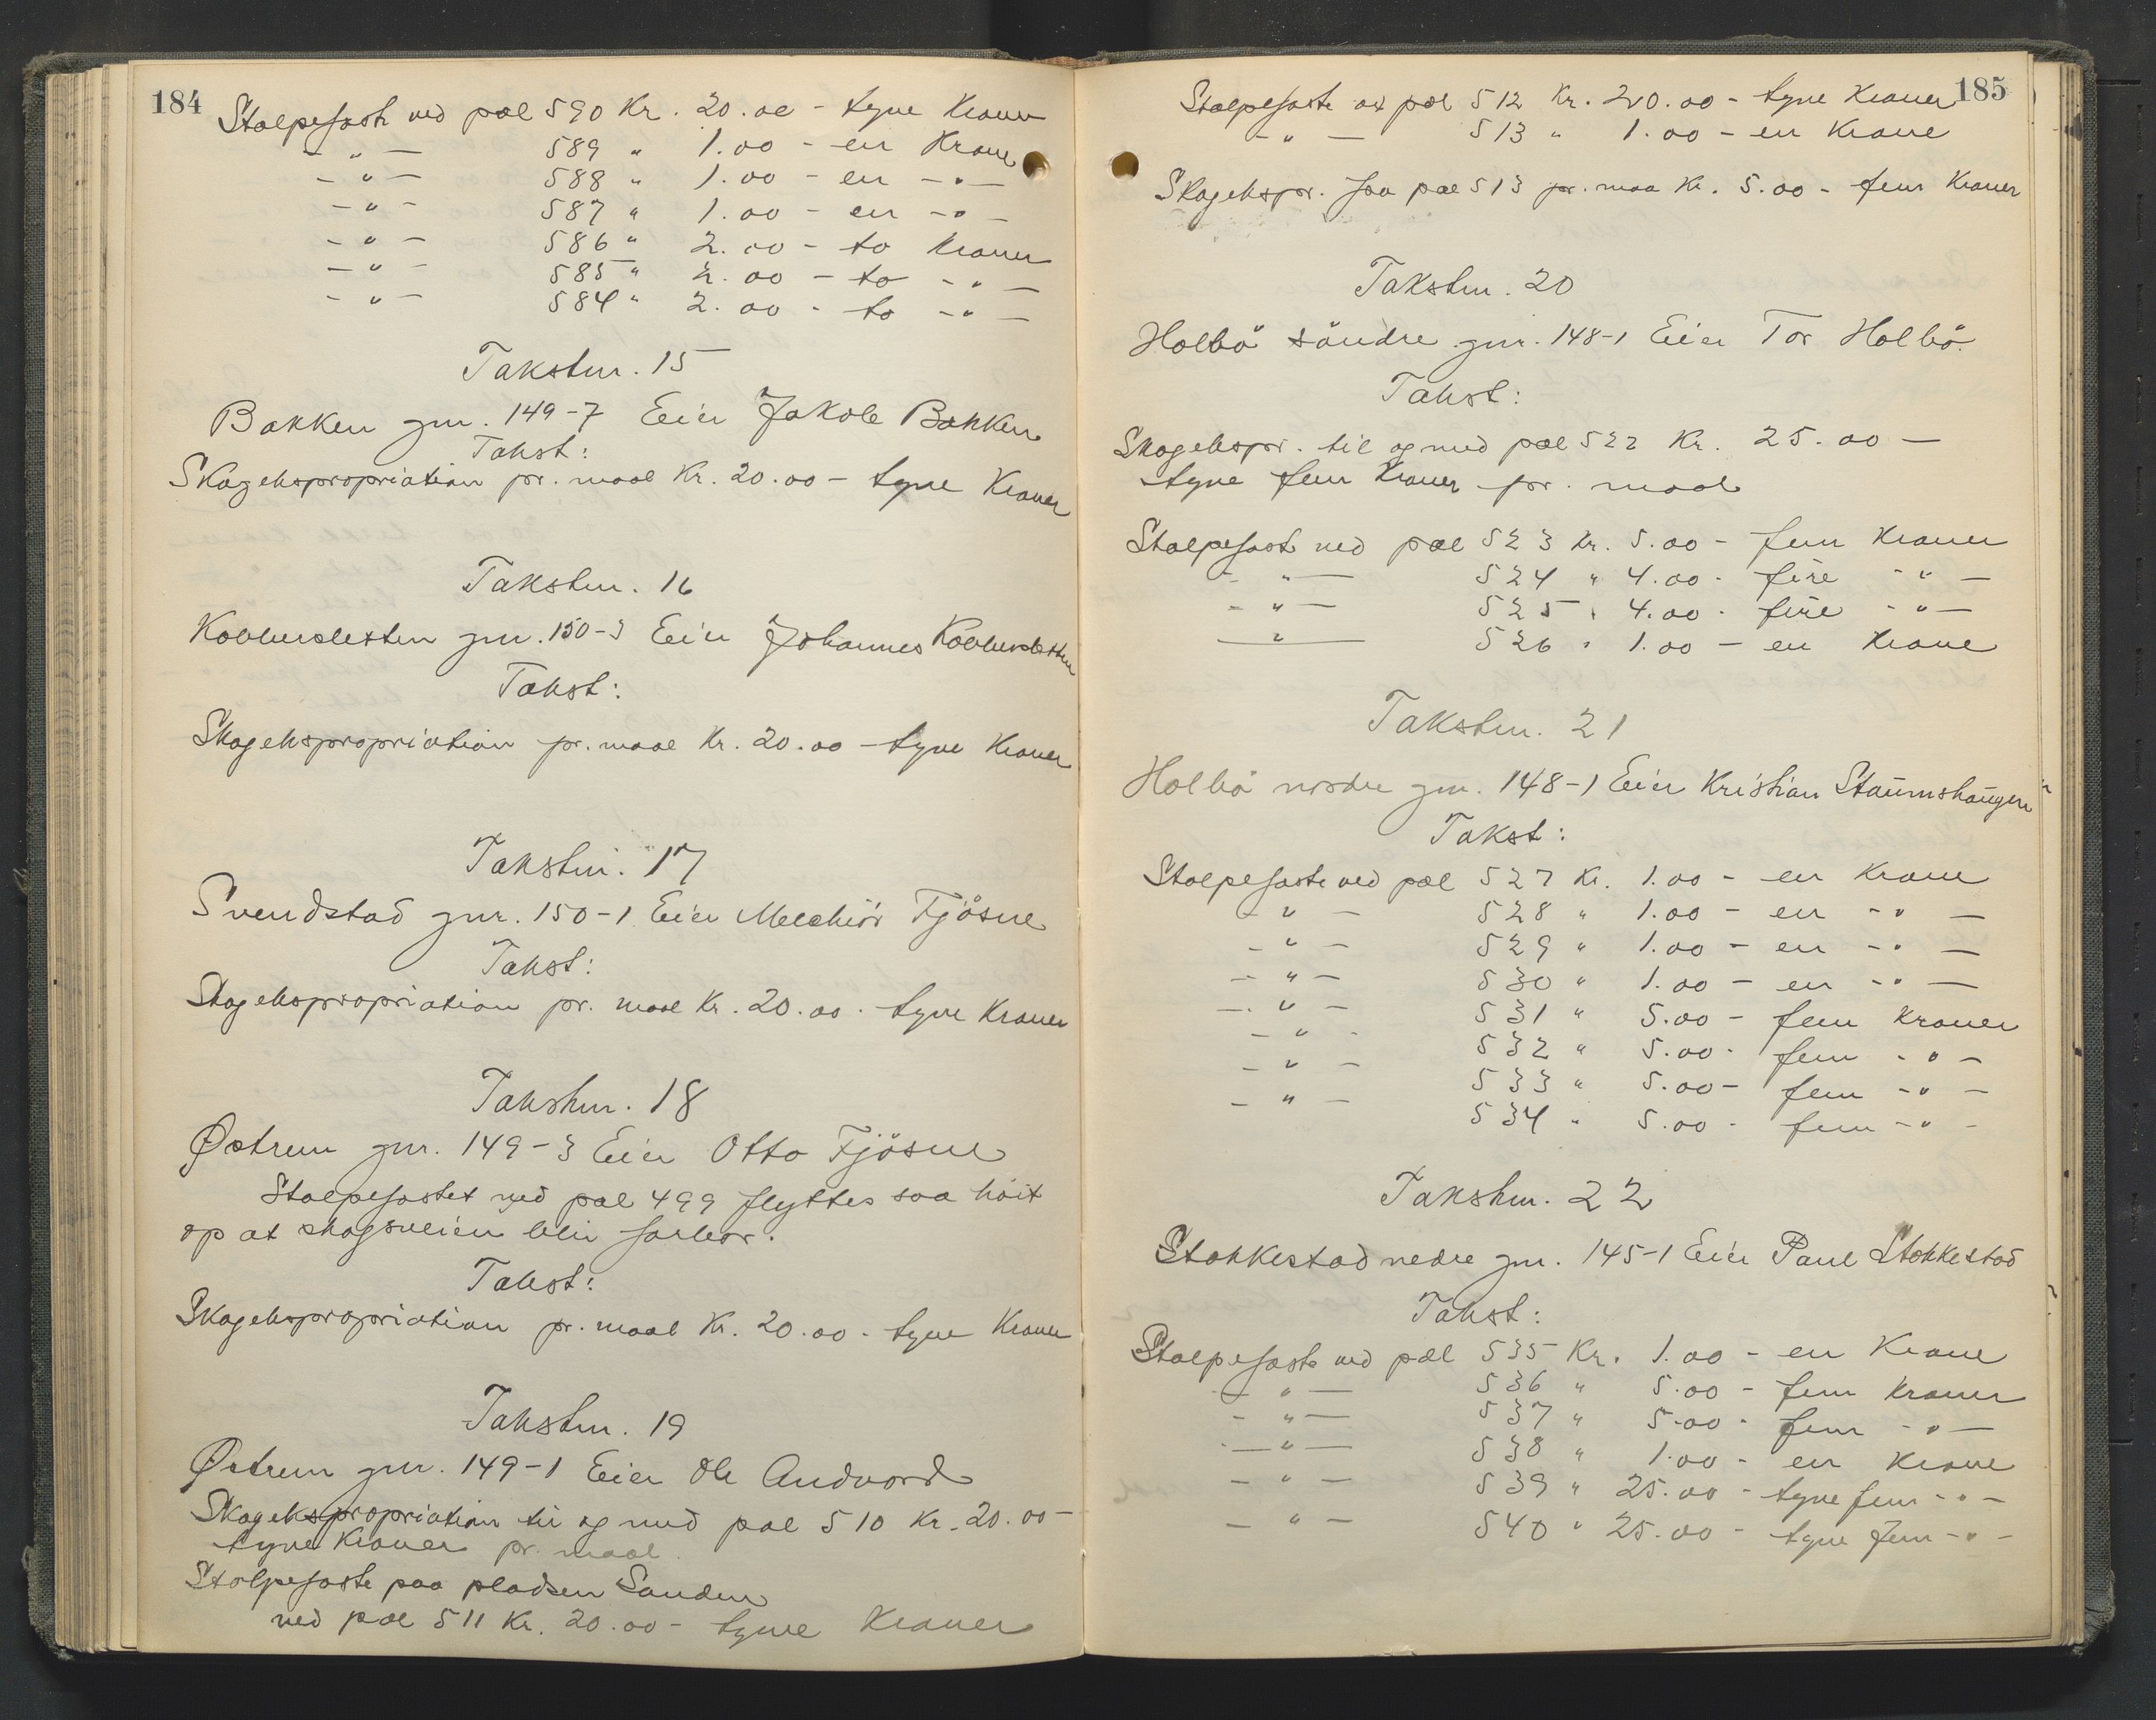 184
Stolpefaste ved pæl 590 Kr. 20.00 - tyve Kroner
- " - 589 " 1.00 - en Krone
- " - 588 " 1.00 - en - " -
- " - 587 " 1.00 - en - " -
- " - 586 " 2.00 - to Kroner
- " - 585 " 2.00 - to - " -
- " - 584 " 2.00 - to - " -
Takstnr. 15
Bakken gnr. 149-7 Eier Jakob Bakken
Takst:
Skogekspropriation pr. maal Kr. 20.00 - tyve Kroner
Takstnr. 16
gnr. 150-3 Eier Johannes
Takst:
Skogekspropriation pr. maal Kr. 20.00 - tyve Kroner
Takstnr. 17
Svendstad gnr. 150-1 Eier Melchiör Fjösne
Takst:
Skogekspropriation pr. maal Kr. 20.00 - tyve Kroner
Takstnr. 18
Østrem gnr. 149-3 Eier Otto Fjösne
Stolpefastet ved pæl 499 flyttes saa höit
op at skogsveien blir farbar.
Takst:
Skogekspropriation pr. maal Kr. 20.00 - tyve Kroner
Takstnr. 19
Østrem gnr. 149-1 Eier Ole Andvord
Skogekspropriation til og med pæl 510 Kr. 20.00 -
tyve Kroner pr. maal.
Stolpefaste paa pladsen Sanden
ved pæl 511 Kr. 20.00 - tyve Kroner
185
Stolpefaste ved pæl 512 Kr. 20.00 - tyve Kroner
- " - 513 " 1.00 - en Krone
Skogekspr. fra pæl 513 pr. maal Kr. 5.00 - fem Kroner
Takstnr. 20
Holbö söndre gnr. 148-1 Eier Tor Holbö.
Takst:
Skogekspr. til og med pæl 522 Kr. 25.00 -
tyve fem Kroner pr. maal
Stolpefaste ved pæl 523 Kr. 5.00 - fem Kroner
- " - 524 " 4.00 - fire - " -
- " - 525 " 4.00 - fire - " -
- " - 526 " 1.00 - en Krone
Takstnr. 21
Holbö nordre gnr. 148-1 Eier Kristian
Takst:
Stolpefaste ved pæl 527 Kr. 1.00 - en Krone
- " - 528 " 1.00 - en - " -
- " - 529 " 1.00 - en - " -
- " - 530 " 1.00 - en - " -
- " - 531 " 5.00 - fem Kroner
- " - 532 " 5.00 - fem - " -
- " - 533 " 5.00 - fem - " -
- " - 534 " 5.00 - fem - " -
Takstnr. 22
Stokkestad nedre gnr. 145-1 Eier Paul Stokkestad
Takst:
Stolpefaste ved pæl 535 Kr. 1.00 - en Krone
- " - 536 " 5.00 - fem Kroner
- " - 537 " 5.00 - fem - " -
- " - 538 " 1.00 - en Krone
- " - 539 " 25.00 - tyve fem - " -
- " - 540 " 25.00 - tyve fem - " -